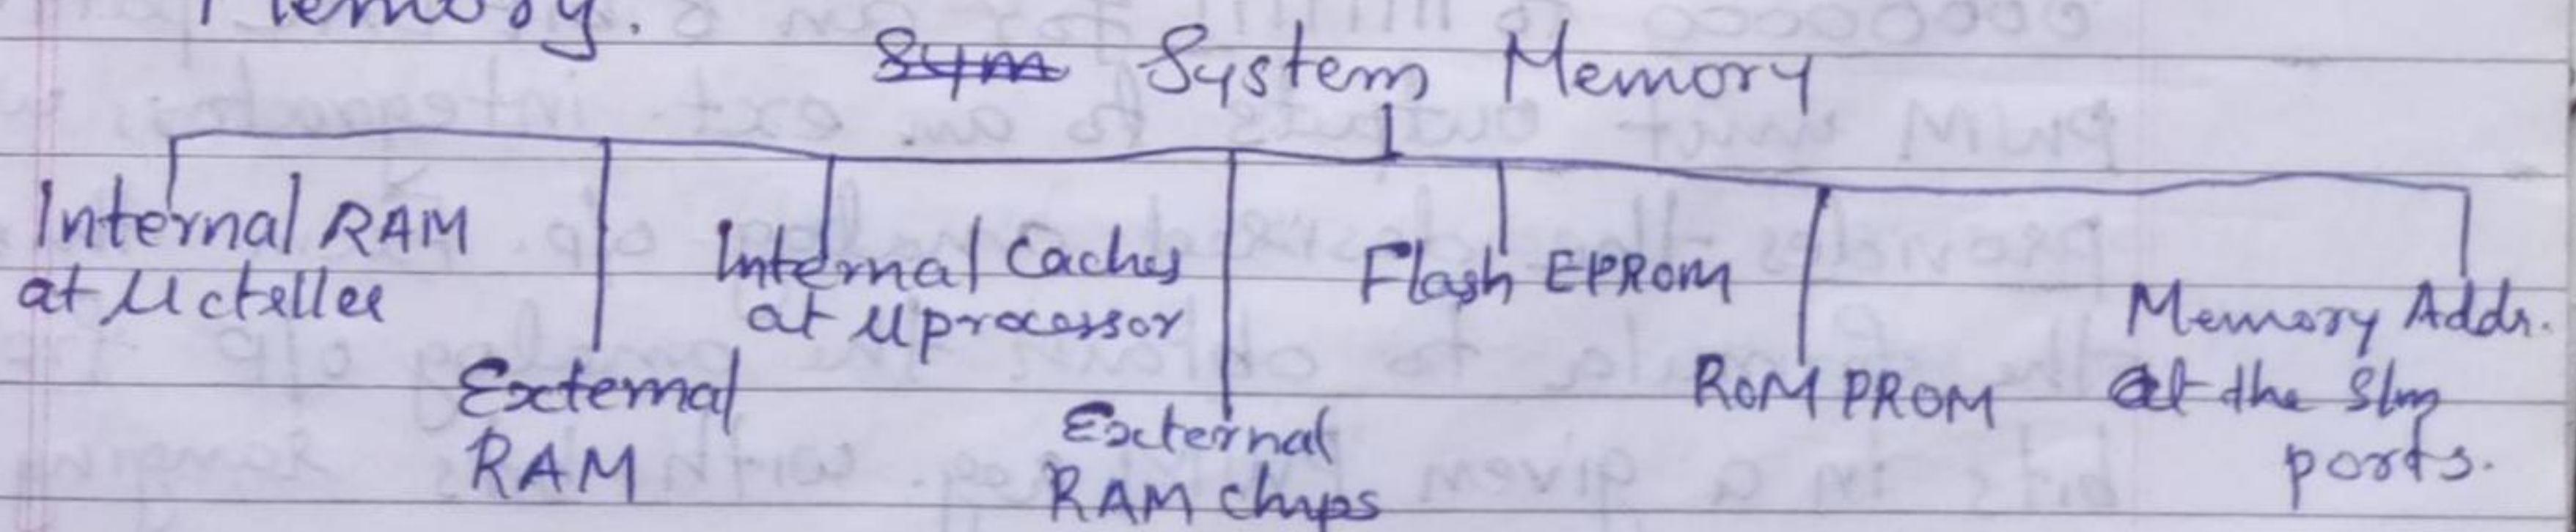 Memory.
System Memory
Internal RAM
at µctller
External
RAM
Internal Caches
at µprocessor
External
RAM chips
Flash EPROM
ROM PROM
Memory Addr.
at the
ports.